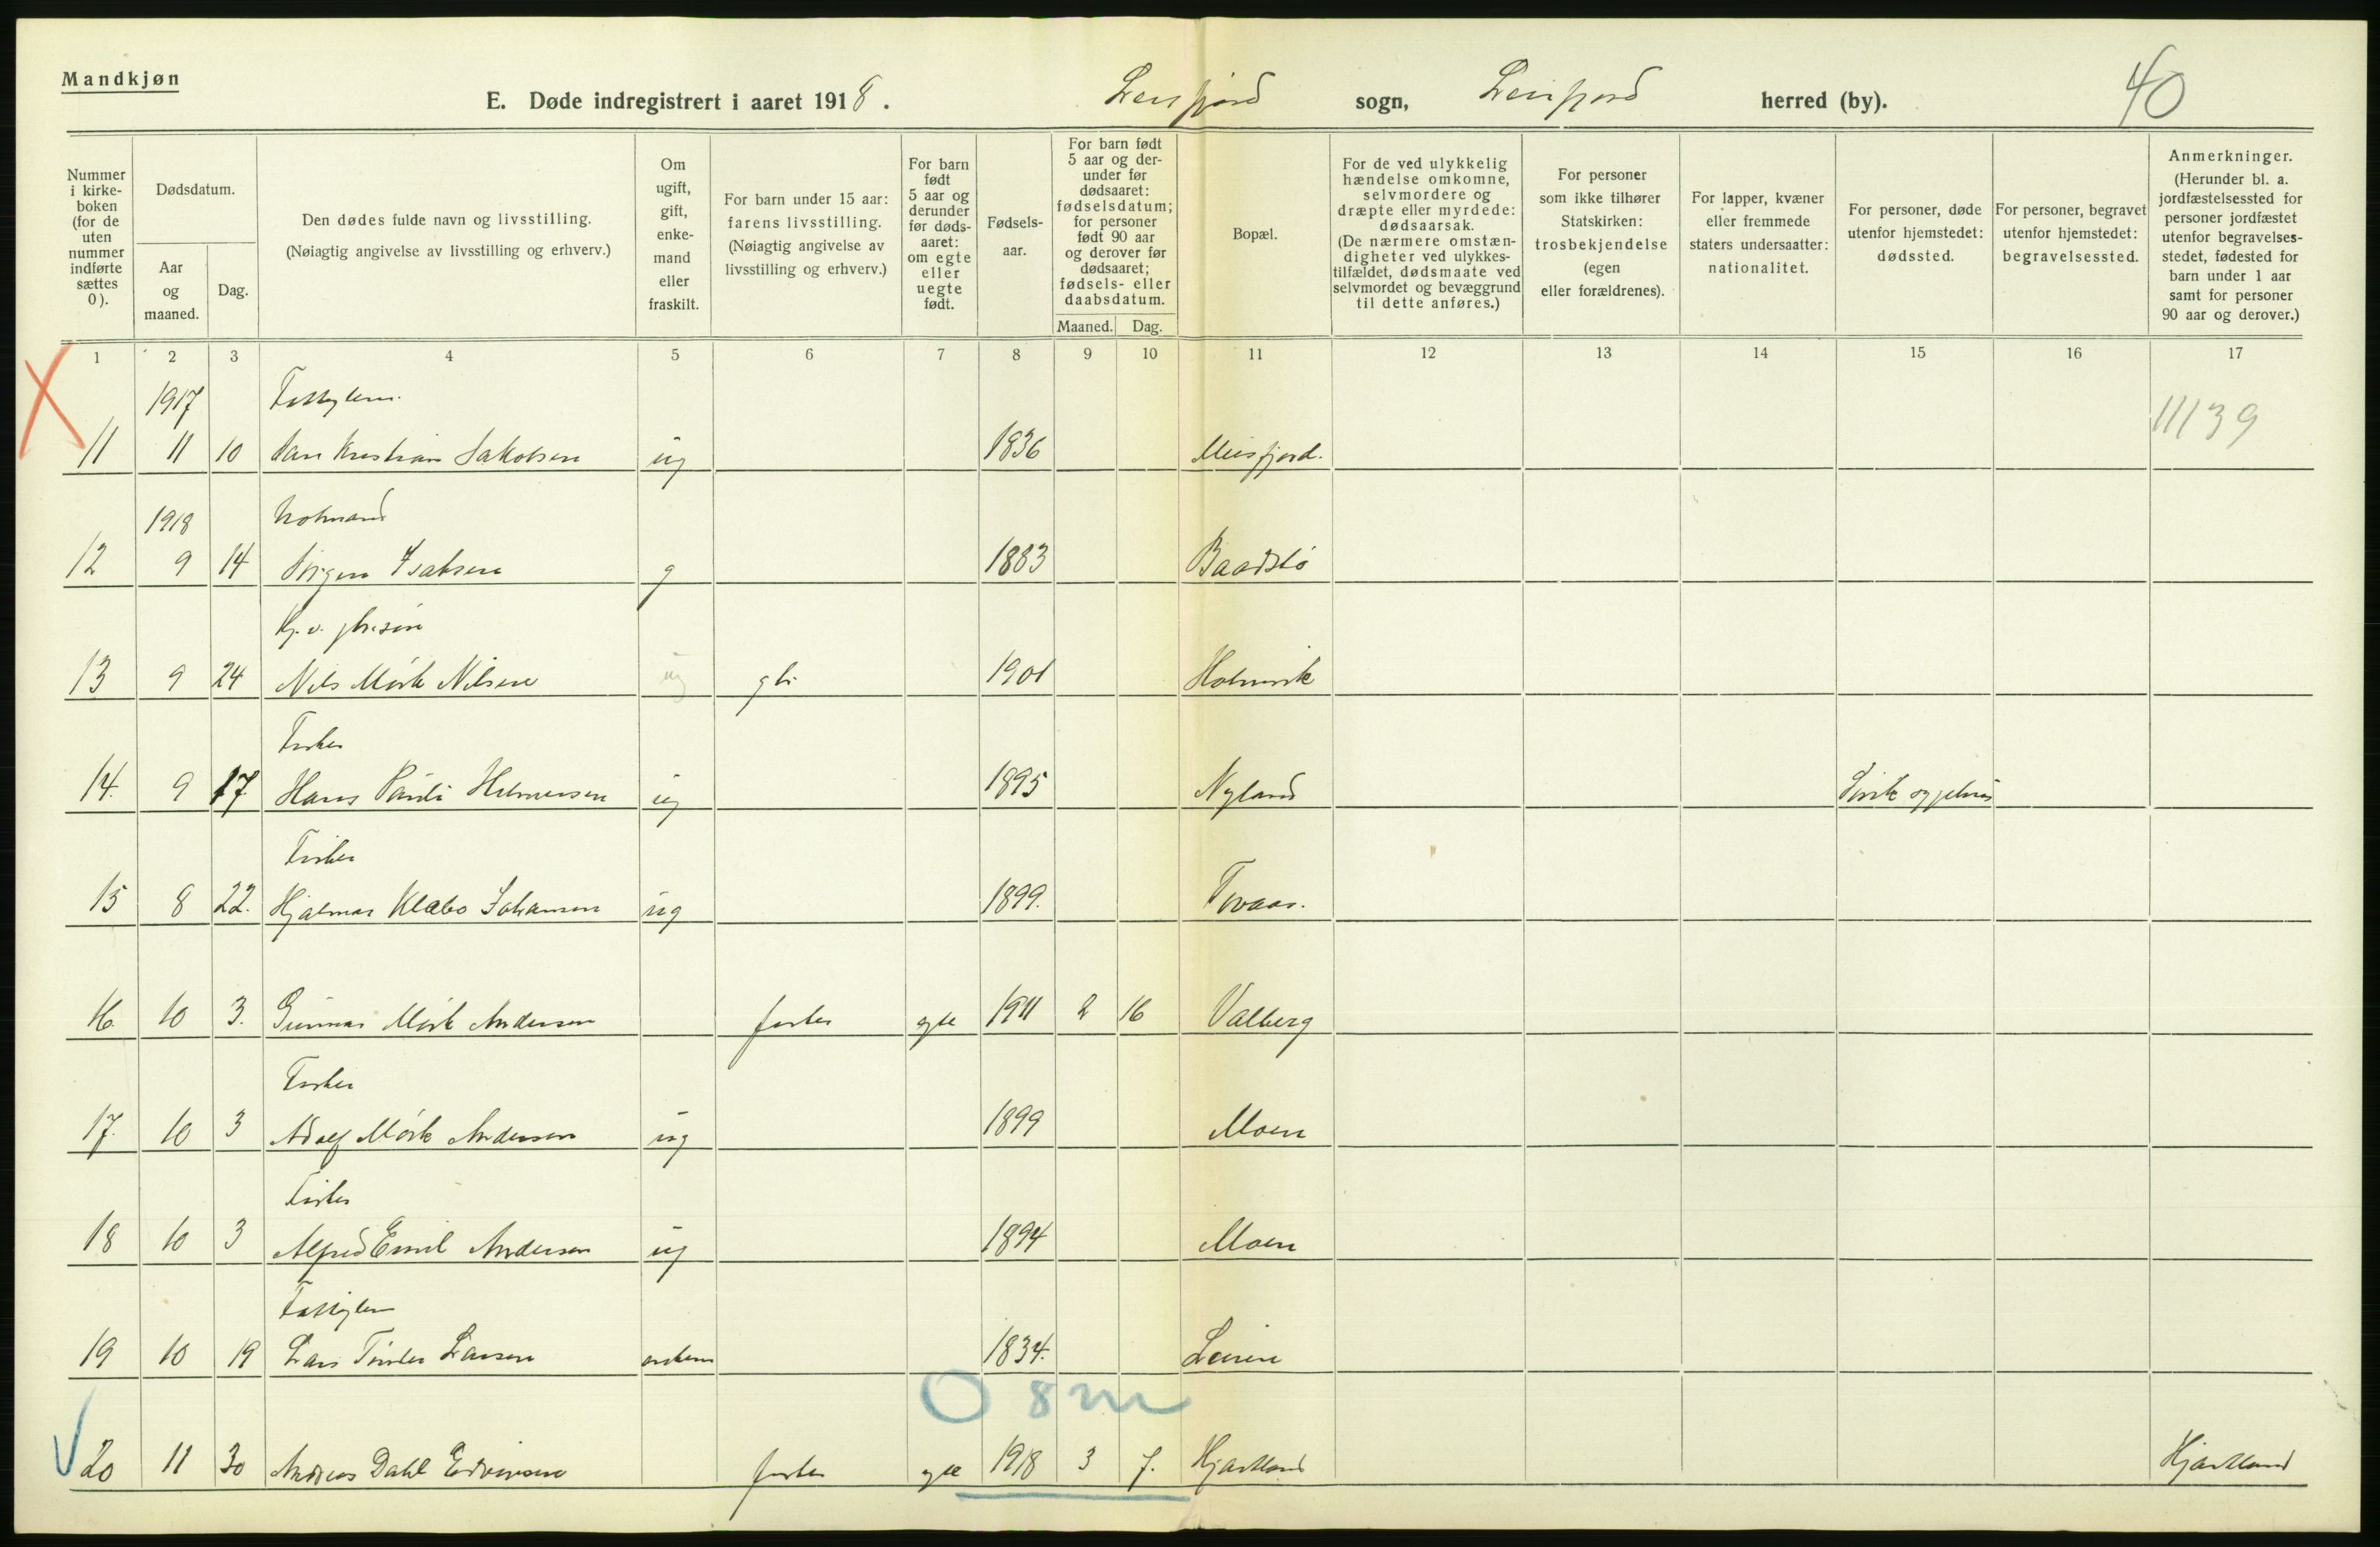 Mandkjøn
E. Døde indregistrert i aaret 1918.
Leirfjord sogn, Leirfjord herred (by).
40
Nummer i kirke-boken (for de uten nummer indførte sættes 0).
Dødsdatum.
Aar og maaned.
Dag.
Den dødes fulde navn og livsstilling.
(Nøiagtig angivelse av livsstilling og erhverv.)
Om ugift, gift, enke-mand eller fraskilt.
For barn under 15 aar: farens livsstilling.
(Nøiagtig angivelse av livsstilling og erhverv.)
For barn født 5 aar og derunder før døds-aaret: om egte eller uegte født.
Fødsels-aar.
For barn født 5 aar og der-under før dødsaaret: fødselsdatum; for personer født 90 aar og derover før dødsaaret; fødsels- eller daabsdatum.
Maaned.
Dag.
Bopæl.
For de ved ulykkelig hændelse omkomne, selvmordere og dræpte eller myrdede: dødsaarsak. (De nærmere omstæn-digheter ved ulykkes-tilfældet, dødsmaate ved selvmordet og bevæggrund til dette anføres.)
For personer som ikke tilhører Statskirken: trosbekjendelse (egen eller forældrenes).
For lapper, kvæner eller fremmede staters undersaatter: nationalitet.
For personer, døde utenfor hjemstedet: dødssted.
For personer, begravet utenfor hjemstedet: begravelsessted.
Anmerkninger. (Herunder bl. a. jordfæstelsessted for personer jordfæstet utenfor begravelses-stedet, fødested for barn under 1 aar samt for personer 90 aar og derover.)
1 2 3 4 5 6 7 8 9 10 11 12 13 14 15 16 17
1917 Fattiglem.
11 11 10 Kristian Jakobsen ug 1836 Meisfjord. 11139
1918
12 9 14 Isaksen g 1883 Baadslø
13 9 24 Nils Mørk Nilsen ug 1901 Holmvik
Fisker
14. 9 17 Hans Pauli Hilmersen ug 1895 Nyland
Fisker
15 8 22. Hjalmar Klæbo Johansen ug 1899. Tovaas.
16. 10 3. Gunnar Mørk Andersen fisker egte 1911 2 16 Valberg
Fisker
17. 10 3 Adolf Mørk Andersen ug 1899 Moen
Fisker
18 10 3 Alfred Emil Andersen ug 1894 Moen
Fattiglem
19 10 19 Lars Larsen enkem 1834. Leiren
0 8 m
20 11 30 Andreas Dahl Edvinsen fisker egte 1918 3 7. Hjartland Hjartland